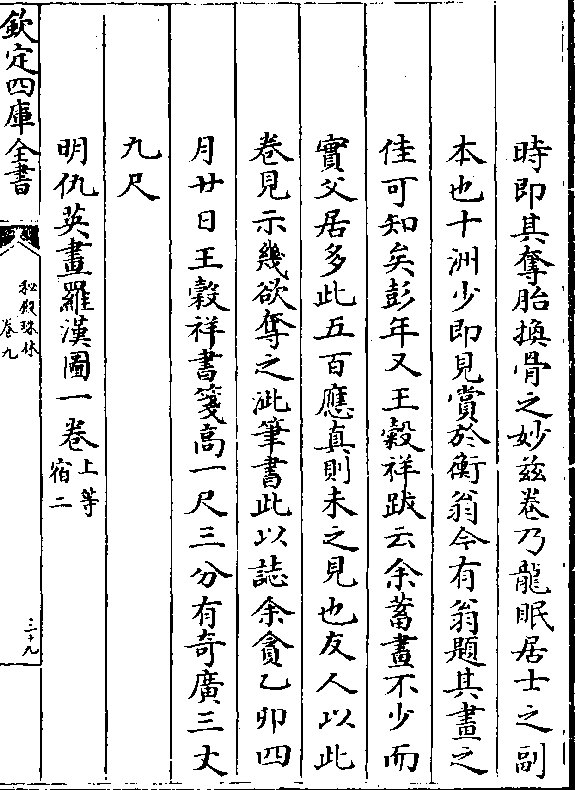 時即其奪胎換骨之妙兹卷乃龍眠居士之副
本也十洲少即見賞於衡翁今有翁題其畫之
佳可知矣彭年又王榖祥跋云余蓄畫不少而
實父居多此五百應真則未之見也友人以此
卷見示幾欲奪之泚筆書此以誌余貪乙卯四
月廿日王榖祥書箋高一尺三分有奇廣三丈
九尺
明仇英畫羅漢圖一卷
上等
宿二
欽定四庫全書
秘殿珠林
卷九
三十九